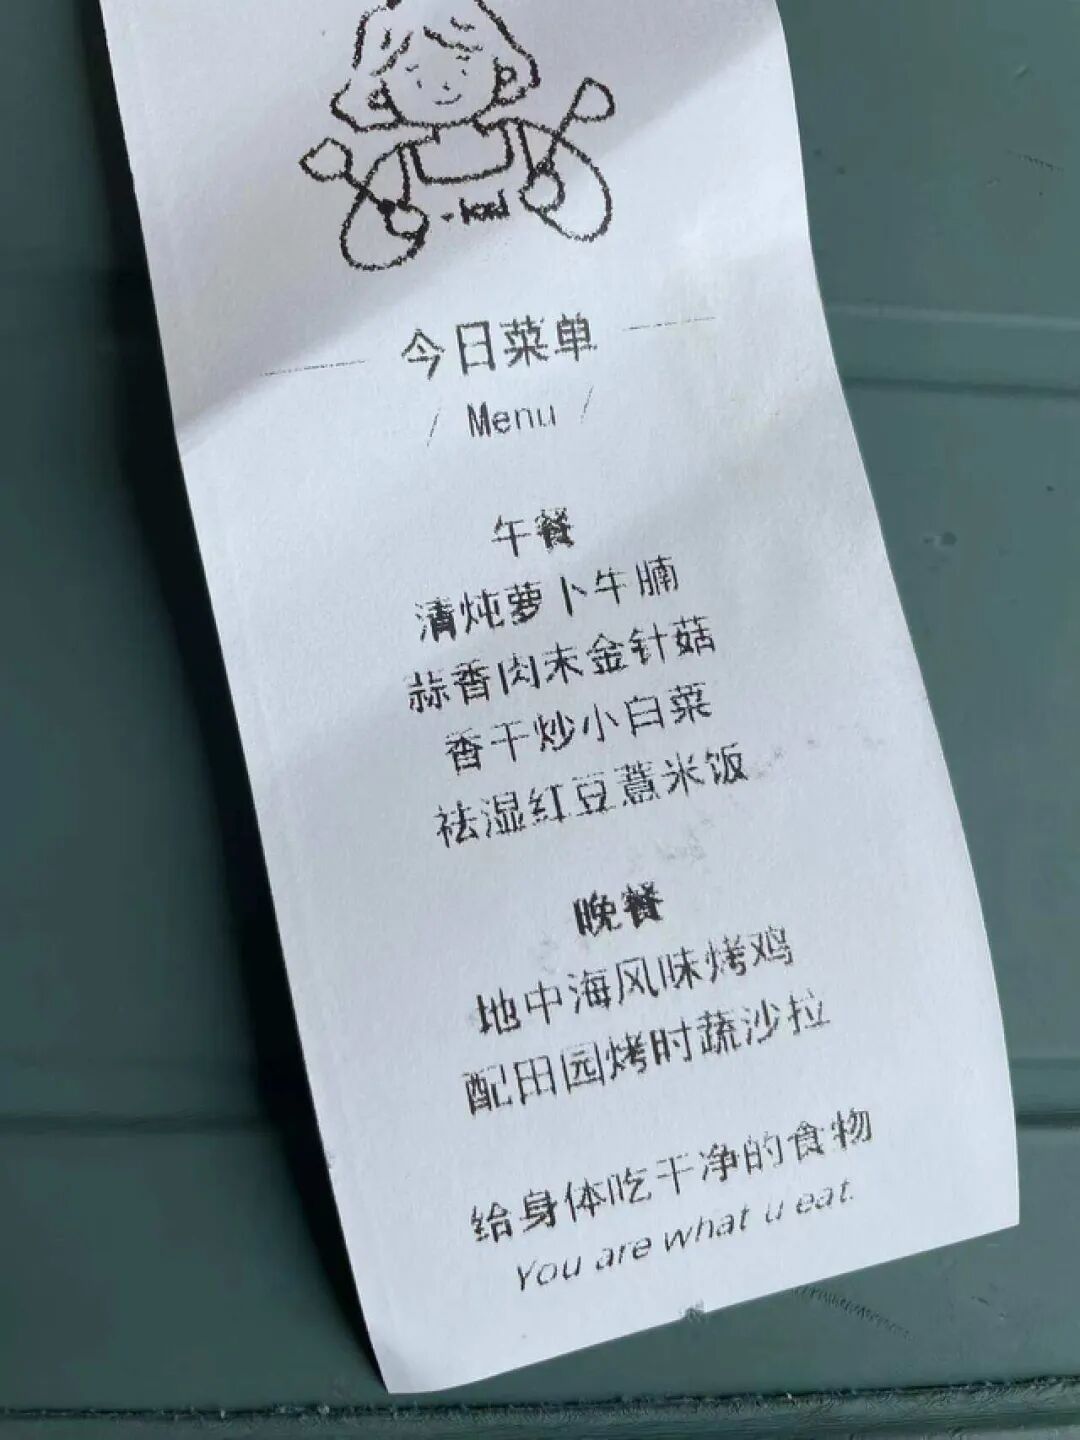 今日菜单
/ Menu /
午餐
清炖萝卜牛腩
蒜香肉末金针菇
香干炒小白菜
祛湿红豆薏米饭
晚餐
地中海风味烤鸡
配田园烤时蔬沙拉
给身体吃干净的食物
You are what u eat.